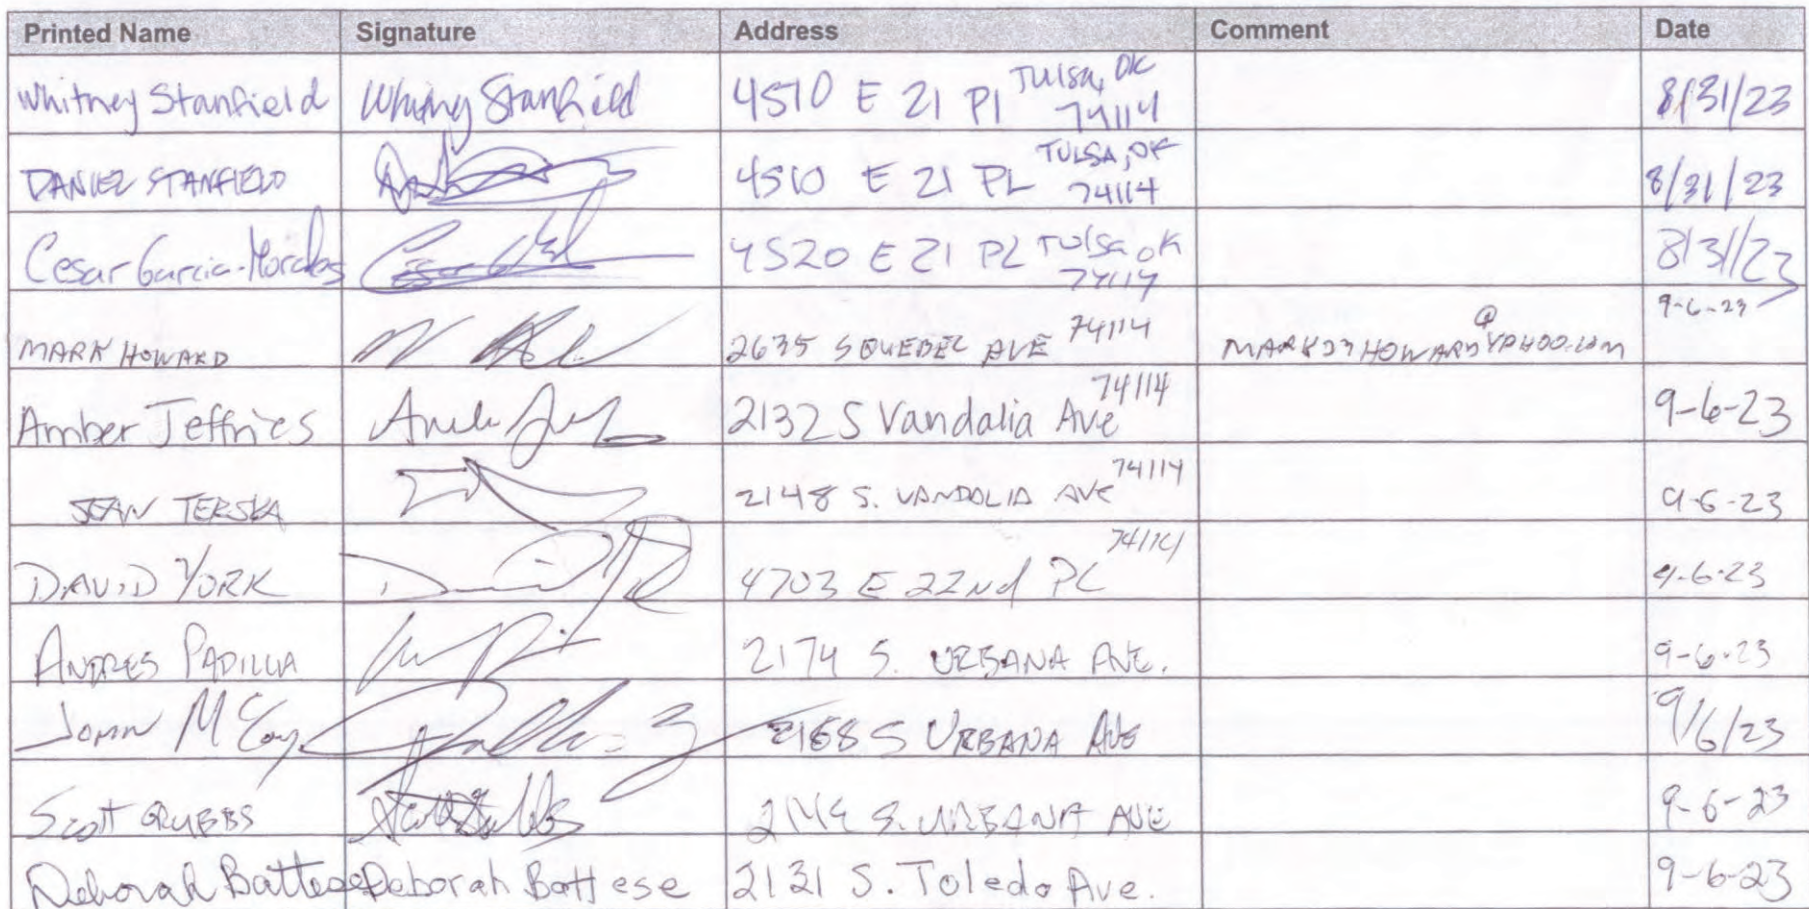 Printed Name Signature Address Comment Date
Whitney Stanfield Whitney Stanfield 4510 E 21 Pl Tulsa, OK 74114 8/31/23
DANIEL STANFIELD 4510 E 21 PL TULSA, OK 74114 8/31/23
Cesar Garcia-Morales 4520 E 21 PL Tulsa OK 74114 8/31/23
MARK HOWARD 2635 S QUEBEC AVE 74114 9-6-23
Amber Jeffries 2132 S Vandalia Ave 74114 9-6-23
SEAN TERSKA 2148 S. VANDALIA AVE 74114 9-6-23
DAVID YORK 4703 E 22nd PL 74114 9-6-23
ANDRES PADILLA 2174 S. URBANA AVE. 9-6-23
John McCoy 2168 S URBANA Ave 9/6/23
Scott GRUBBS S. URBANA AVE 9-6-23
Deborah Battese Deborah Battese 2131 S. Toledo Ave. 9-6-23